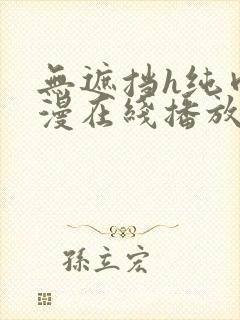 無遮挡h纯内
漫在线播放
孫立宏